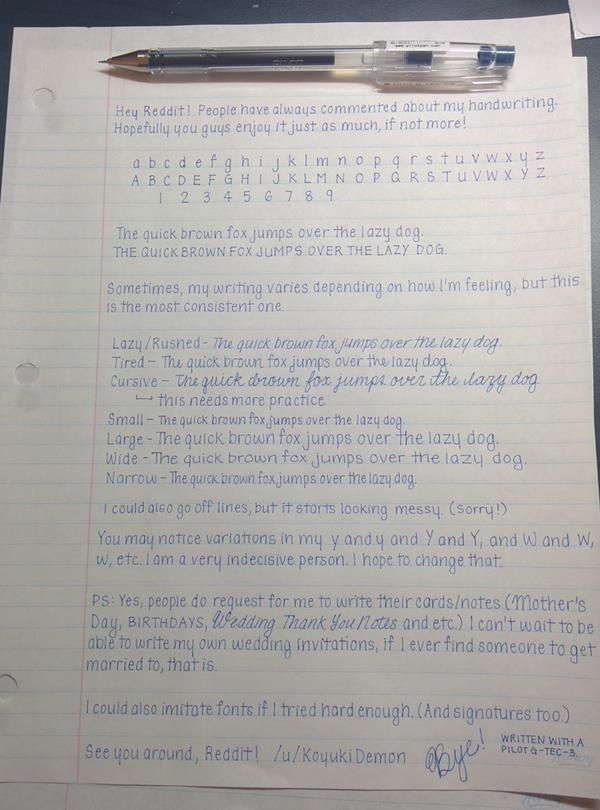 www.pilotpen.com
PILOT
Hey Reddit! People have always commented about my handwriting.
Hopefully you guys enjoy it just as much, if not more!
a b c d e f g h i j k l m n o p q r s t u v w x y z
A B C D E F G H I J K L M N O P Q R S T U V W X Y Z
1 2 3 4 5 6 7 8 9
The quick brown fox jumps over the lazy dog.
THE QUICK BROWN FOX JUMPS OVER THE LAZY DOG.
Sometimes, my writing varies depending on how I'm feeling, but this
is the most consistent one.
Lazy/Rushed - The quick brown fox jumps over the lazy dog.
Tired - The quick brown fox jumps over the lazy dog.
Cursive - The quick brown fox jumps over the lazy dog
↳ this needs more practice.
Small - The quick brown fox jumps over the lazy dog.
Large - The quick brown fox jumps over the lazy dog.
Wide - The quick brown fox jumps over the lazy dog.
Narrow - The quick brown fox jumps over the lazy dog.
I could also go off lines, but it starts looking messy. (Sorry!)
You may notice variations in my y and y and Y and Y, and W and W,
w, etc. I am a very indecisive person. I hope to change that.
PS: Yes, people do request for me to write their cards/notes (Mother's
Day, BIRTHDAYS, Wedding Thank You Notes and etc.) I can't wait to be
able to write my own wedding invitations, if I ever find someone to get
married to, that is.
I could also imitate fonts if I tried hard enough. (And signatures too.)
See you around, Reddit! /u/KoyukiDemon
Bye!
WRITTEN WITH A
PILOT G-TEC-3.